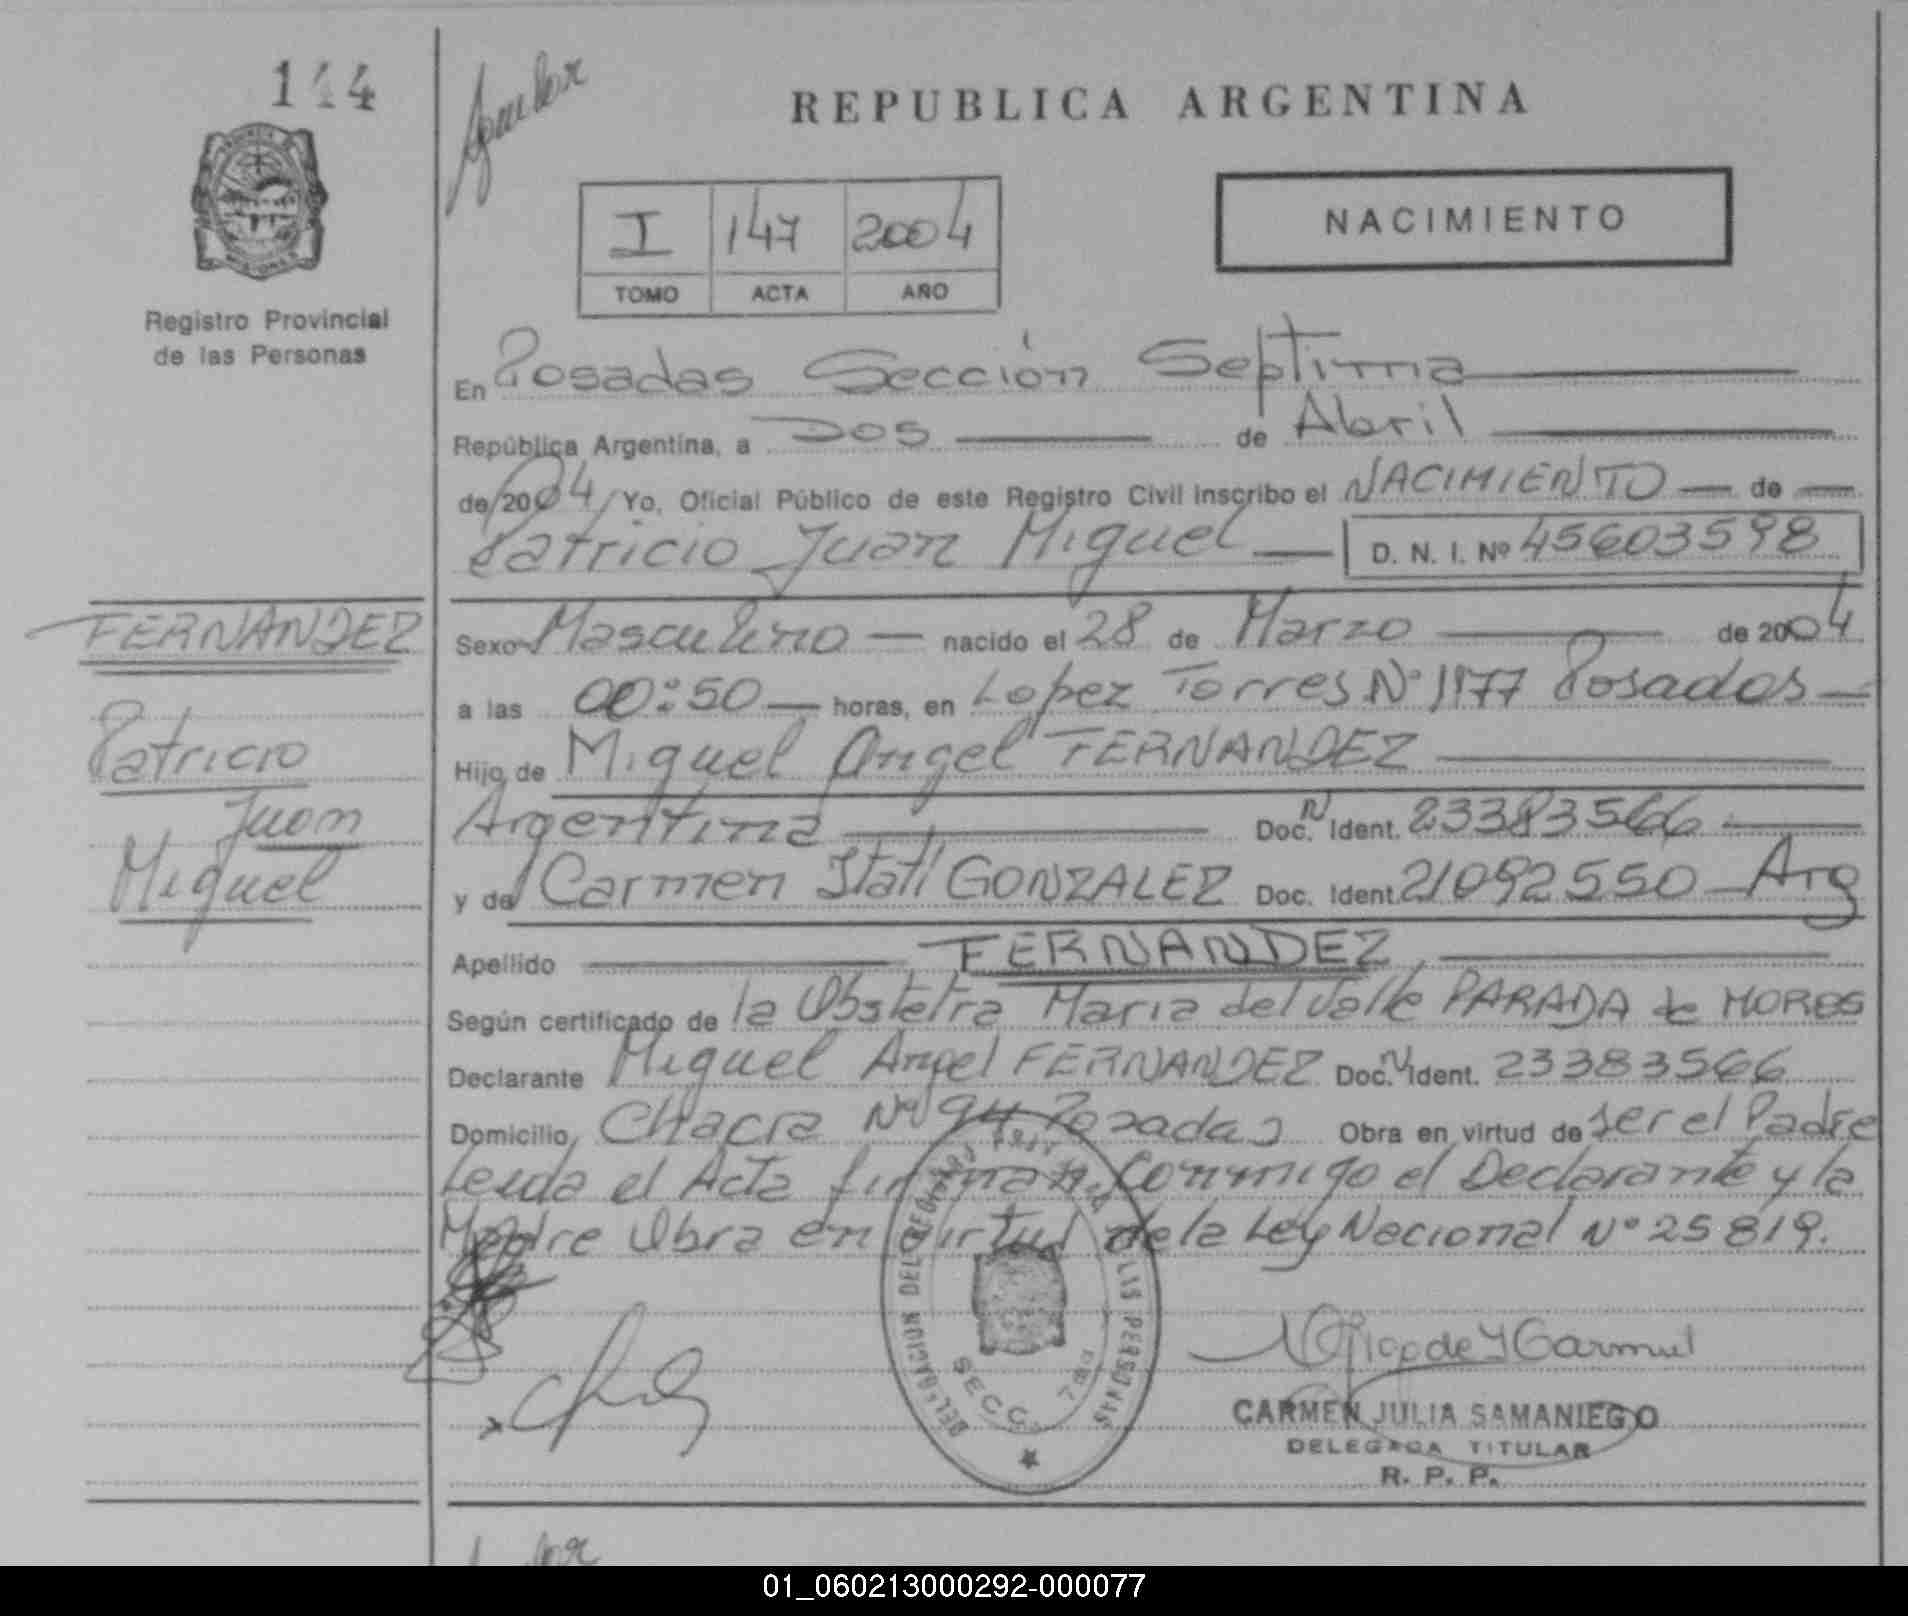 144
Aguilar
REPUBLICA ARGENTINA
NACIMIENTO
I 147 2004
TOMO ACTA AÑO
MISIONES
Registro Provincial
de las Personas
En Posadas Sección Septima
República Argentina, a Dos de Abril
de 2004 Yo, Oficial Público de este Registro Civil Inscribo el NACIMIENTO de
Patricio Juan Miguel D. N. I. Nº 45603598
FERNANDEZ
Patricio
Juan
Miguel
Sexo Masculino nacido el 28 de Marzo de 2004
a las 00:50 horas, en Lopez Torres Nº 1177 Posadas
Hijo de Miguel Angel FERNANDEZ
Argentina Doc. N Ident. 23383566
y de Carmen Itatí GONZALEZ Doc. Ident. 21092550 Arg
Apellido FERNANDEZ
Según certificado de la Obstetra Maria del Valle PARADA de MORES
Declarante Miguel Angel FERNANDEZ Doc. N Ident. 23383566
Domicilio Chacra Nº 94 Posadas Obra en virtud de ser el Padre
Leida el Acta firman Conmigo el Declarante y la
Madre Obra en Virtud de la Ley Nacional Nº 25819.
DELEGACION DEL REGISTRO PROVINCIAL DE LAS PERSONAS
SECC. 7ma
CARMEN JULIA SAMANIEGO
DELEGADA TITULAR
R. P. P.
01_060213000292-000077